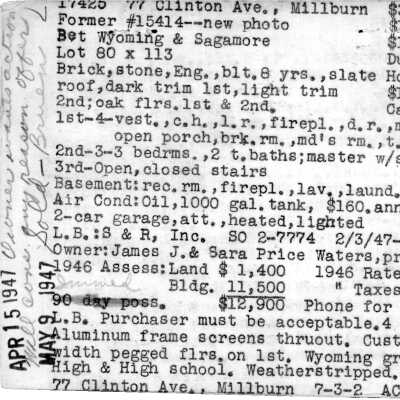 17425 77 Clinton Ave., Millburn
Former #15414--new photo
Bet Wyoming & Sagamore
Lot 80 x 113
Brick,stone,Eng.,blt.8 yrs.,slate
roof,dark trim 1st,light trim
2nd;oak flrs.1st & 2nd.
1st-4-vest.,c.h.,l.r.,firepl.,d.r.,
open porch,brk.rm.,md's rm.,t.
2nd-3-3 bedrms.,2 t.baths;master w/s
3rd-Open,closed stairs
Basement:rec.rm.,firepl.,lav.,laund.
Air Cond:Oil,1000 gal.tank, $160.ann
2-car garage,att.,heated,lighted
L.B.:S & R, Inc. SO 2-7774 2/3/47-
Owner:James J.& Sara Price Waters,pr
1946 Assess:Land $ 1,400 1946 Rate
Bldg. 11,500 " Taxes
90 day poss. $12,900 Phone for
L.B. Purchaser must be acceptable.4
Aluminum frame screens thruout. Cust
width pegged flrs.on 1st. Wyoming gr
High & High school. Weatherstripped.
77 Clinton Ave., Millburn 7-3-2 AC
APR 15 1947 Owner wants action
MAY 9 1947 Sold